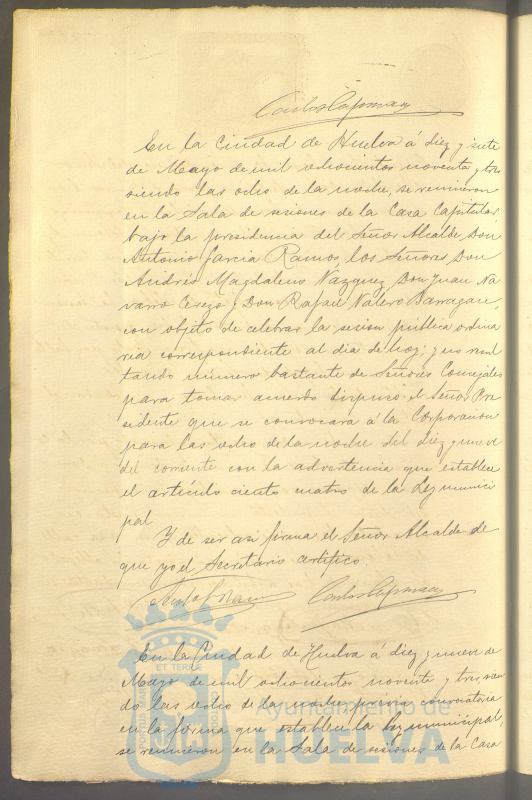 Carlos Capman
En la Ciudad de Huelva á diez y siete
de Mayo de mil ochocientos noventa y tres
siendo las ocho de la noche, se reunieron
en la Sala de sesiones de la Casa Capitular
bajo la presidencia del Señor Alcalde, Don
Antonio García Ramos, los Señores Don
Andrés Magdaleno Vazquez, Don Juan Na
varro Crespo y Don Rafael Valero Barragan,
con objeto de celebrar la sesion publica ordina
ria correspondiente al dia de hoy; y no resul
tando número bastante de Señores Concejales
para tomar acuerdo dispuso el Señor Pre
sidente que se convocara á la Corporacion
para las ocho de la noche del diez y nueve
del corriente con la advertencia que establece
el artículo ciento cuatro de la Ley munici
pal
Y de ser asi firma el Señor Alcalde de
que yo el Secretario certifico.
Carlos Capman
En la Ciudad de Huelva á diez y nueve de
Mayo de mil ochocientos noventa y tres, sien
do las ocho de la noche previa convocatoria
en la forma que establece la Ley municipal,
se reunieron en la Sala de sesiones de la Casa
ET TERRE
Ayuntamiento de
HUELVA